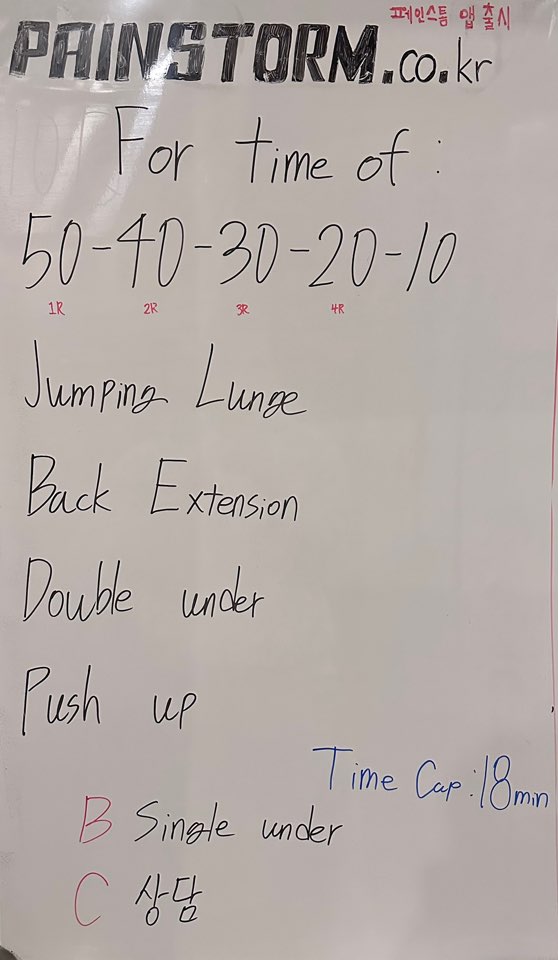 페인스톰 앱 출시
PAINSTORM.co.kr
For time of :
50-40-30-20-10
1R 2R 3R 4R
Jumping Lunge
Back Extension
Double under
Push up
Time Cap : 18min
B Single under
C 상담